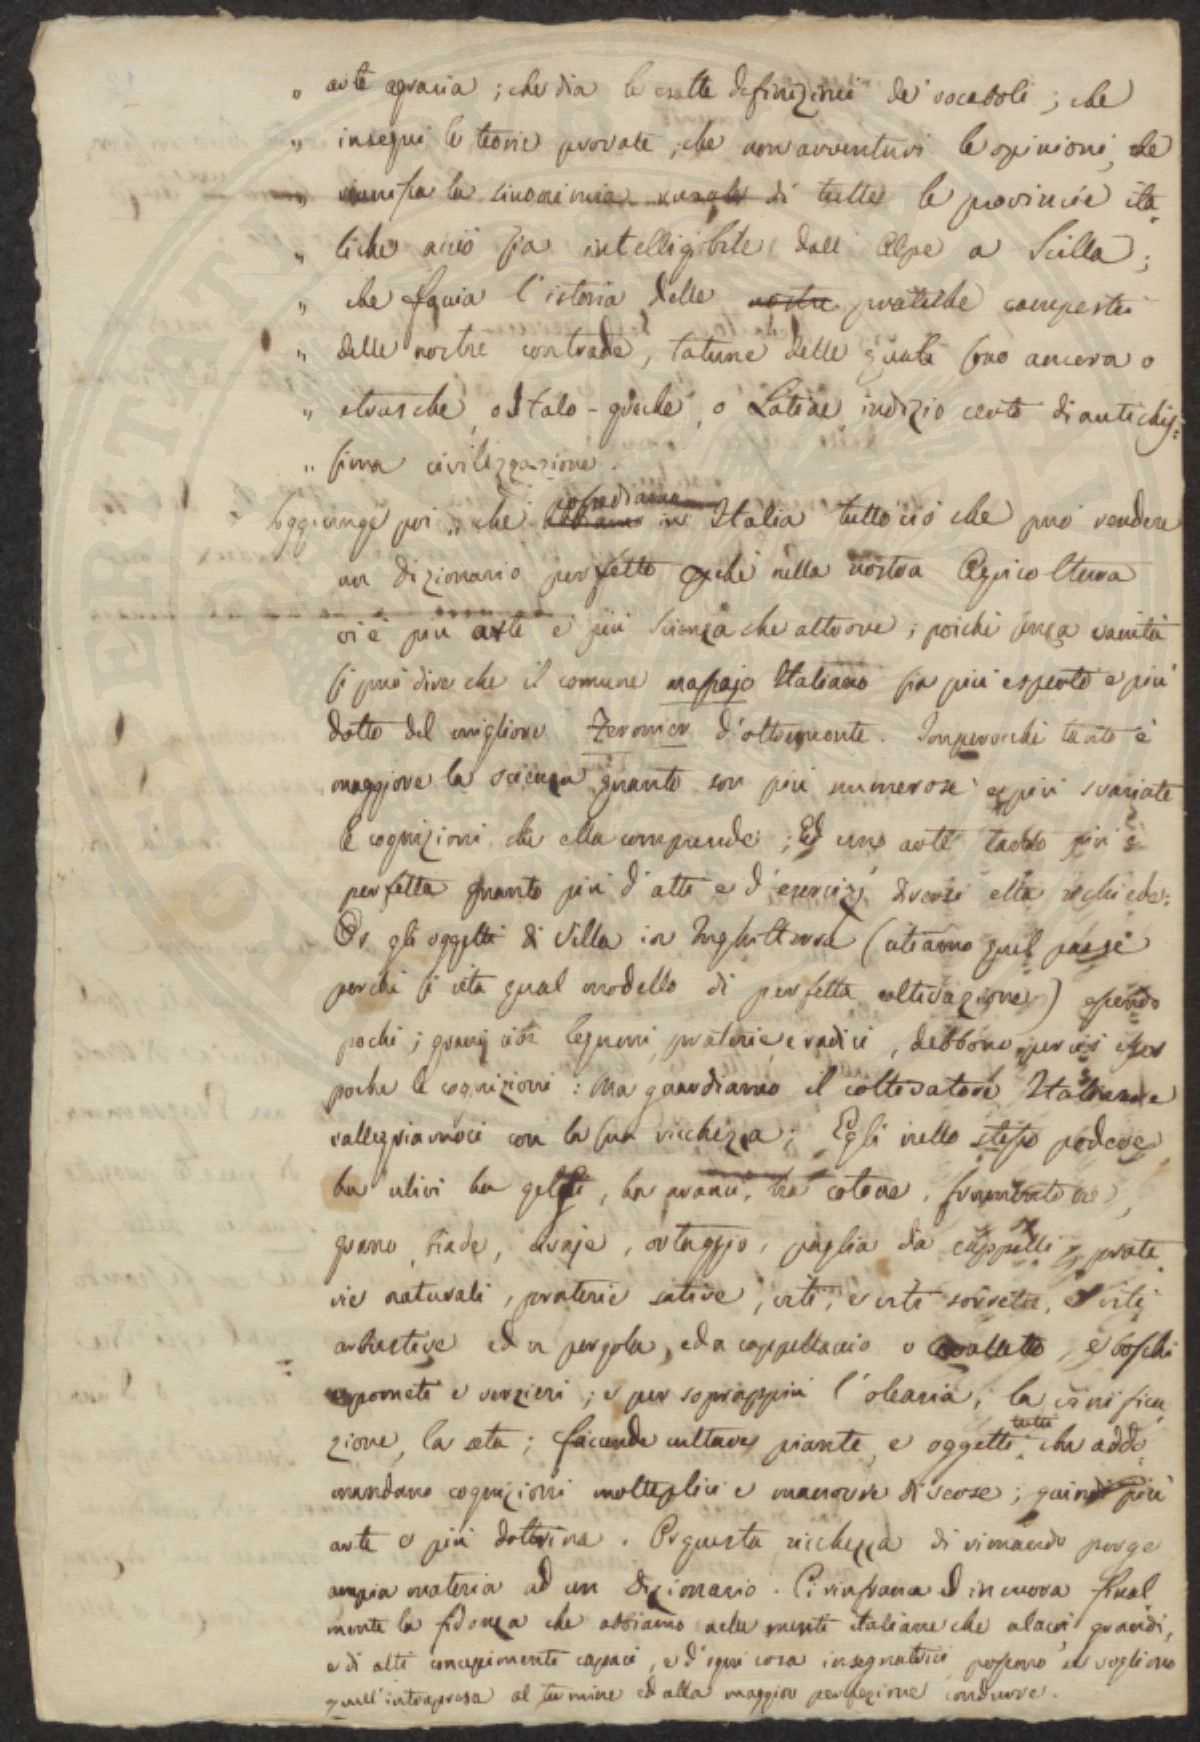 " arte agraria ; che dia le esatte definizioni de' vocaboli ; che
" insegni le teorie provate , che non avventuri le opinioni, che
" riunisca la sinonimia rurale di tutte le provincie ita
" liche acciò sia intelligibile dall' Alpe a Scilla ;
" che faccia l'istoria delle nostre pratiche campestri
" delle nostre contrade, talune delle quali sono ancora o
" etrusche, o Italo-greche, o Latine indizio certo di antichis=
" sima civilizzazione.
possediamo
Soggiunge poi „ che abbiamo in Italia tutto ciò che può rendere
un dizionario perfetto che nella nostra Agricoltura
vi è più arte e più Scienza che altrove ; poichè senza vanità
si può dire che il comune massajo Italiano sia più esperto e più
dotto del migliore d'oltremonte. Imperocchè tanto è
maggiore la scienza quanto son più numerose e più svariate
le cognizioni che ella comprende ; Ed un' arte tanto più è
perfetta quanto più d'atti e d'esercizi diversi ella richiede.
Or gli oggetti di Villa in Inghilterra (citiamo quel paese
perchè si cita qual modello di perfetta coltivazione) essendo
pochi ; grani cioè legumi, praterie, e radici, debbono perciò esser
poche le cognizioni : Ma guardiamo il coltivatore Italiano e
rallegriamoci con la sua ricchezza ; Egli nello stesso podere
ha ulivi ha gelsi, ha aranci, ha cotone,
grano, biade, civaje, ortaggio, paglia da cappelli, prate
rie naturali, praterie sative, viti, e viti sorrette, e viti
arbustive ed a pergola, ed a cappellaccio o , e boschi
e pometi e verzieri ; e per soprappiù l'olearia, la vinifica
tutti
zione, la seta ; faccende culture piante, e oggetti che addo
mandano cognizioni molteplici e manovre diverse ; quindi più
arte e più dottrina. Or questa ricchezza di rimando porge
ampia materia ad un Dizionario. Ci rinfranca ed incuora final
mente la fidanza che abbiamo nelle menti italiane che alacri, grandi,
e di alti concepimenti capaci, e d'ogni cosa insegnatrici possono e vogliono
quell'intrapresa al termine ed alla maggior perfezione condurre.